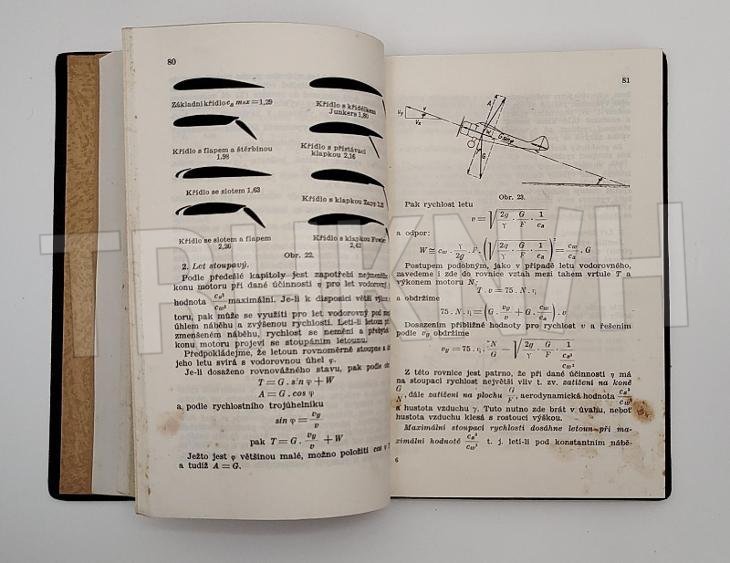 80
Základní křídlo c_a max = 1,29
Křídlo s křidélkem
Junkers 1,80
Křídlo s flapem a štěrbinou
1,98
Křídlo s přistávací
klapkou 2,16
Křídlo se slotem 1,63
Křídlo s klapkou Zapp
Křídlo se slotem a flapem
2,26
Křídlo s klapkou Fowler
2,42
Obr. 22.
2. Let stoupavý.
Podle předešlé kapitoly jest zapotřebí
konu motoru při dané účinnosti η pro let vodorovný,
hodnota c_a³/c_w² maximální. Je-li k disposici větší výkon
toru, pak může se využití pro let vodorovný pod
úhlem náběhu a zvýšenou rychlostí. Letí-li letoun při
zmenšeném náběhu, rychlost se nemění a
konu motoru projeví se stoupáním letounu.
Předpokládejme, že letoun rovnoměrně stoupne a
jeho letu svírá s vodorovnou úhel φ.
Je-li dosaženo rovnovážného stavu, pak podle
T = G . sin φ + W
A = G . cos φ
a podle rychlostního trojúhelníku
sin φ = v_y/v
pak T = G . v_y/v + W
Ježto jest φ většinou malé, možno položiti cos φ
a tudíž A = G.
81
v_y
v
v_x
A
G
Obr. 23.
Pak rychlost letu
v = √(2g/γ . G/F . 1/c_a)
a odpor:
W ≅ c_w . γ/2g . F . (√(2g/γ . G/F . 1/c_a))² = c_w/c_a . G
Postupem podobným, jako v případě letu vodorovného,
zavedeme i zde do rovnice vztah mezi tahem vrtule T a
výkonem motoru N:
T . v = 75 . N . η
a obdržíme
75 . N . η = (G . v_y/v + G . c_w/c_a) . v
Dosazením přibližné hodnoty pro rychlost v a řešením
podle v_y obdržíme
v_y = 75 . η . N/G − √(2g/γ . G/F . 1/(c_a³/c_w²))
Z této rovnice jest patrno, že při dané účinnosti η má
na stoupací rychlost největší vliv t. zv. zatížení na koně
G/N, dále zatížení na plochu G/F, aerodynamická hodnota c_a³/c_w²
a hustota vzduchu γ. Tuto nutno zde brát v úvahu, neboť
hustota vzduchu klesá s rostoucí výškou.
Maximální stoupací rychlosti dosáhne letoun při ma-
ximální hodnotě c_a³/c_w² t. j. letí-li pod konstantním nábě-
6
TRHKNIH